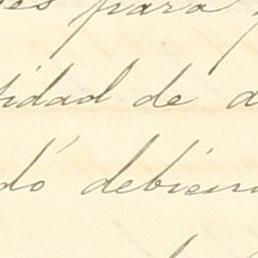 es para
tidad de a
dó debien